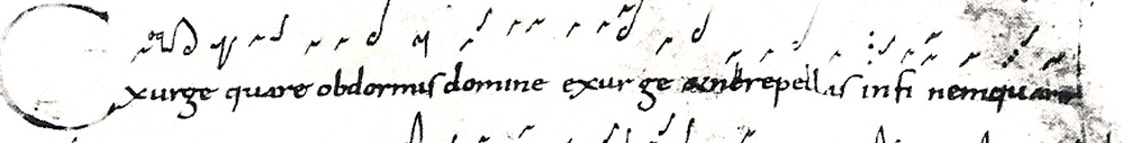 Exurge quare obdormis domine exurge & ne repellas in finem quare